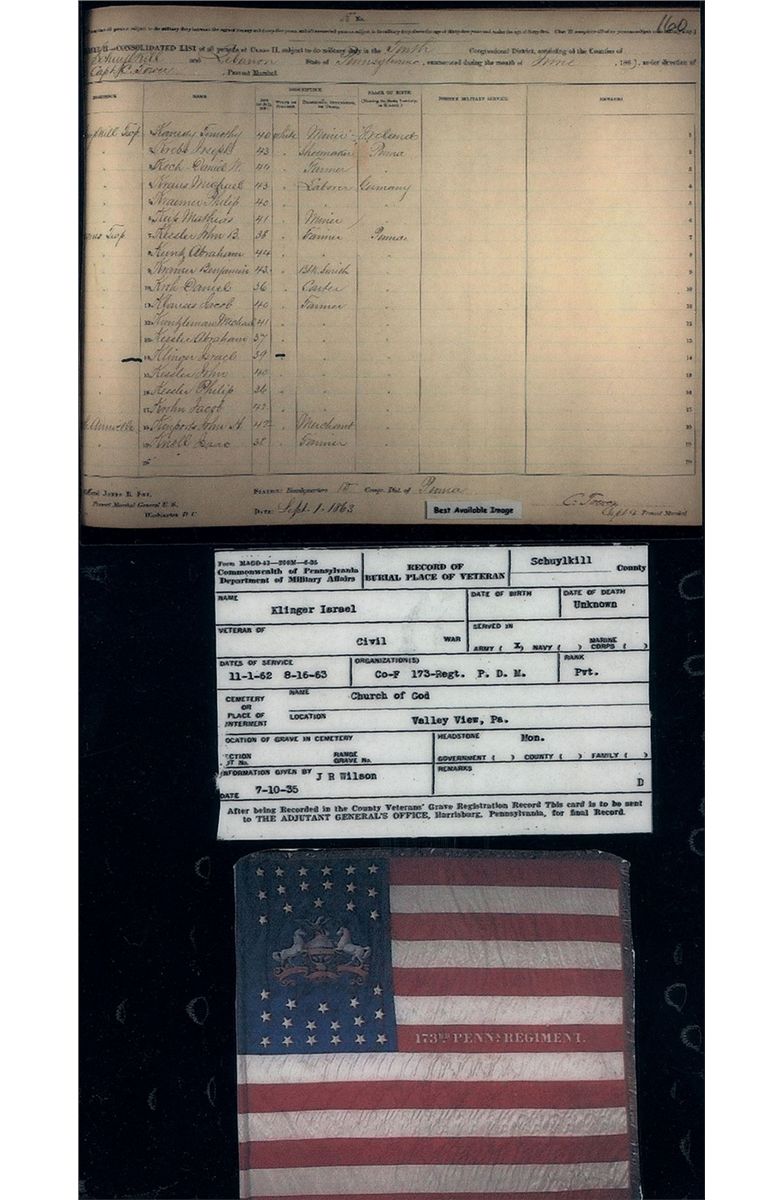 160
CLASS II—CONSOLIDATED LIST of all persons of CLASS II, subject to do military duty in the Tenth Congressional District, consisting of the Counties of
Schuylkill and Lebanon State of Pennsylvania, enumerated during the month of June, 1863, under direction of
Capt. C. Tower, Provost Marshal.
RESIDENCE NAME DESCRIPTION PLACE OF BIRTH FORMER MILITARY SERVICE REMARKS
Kanedy Timothy 40 White Miner Ireland 1
Krebs Joseph 43 " Shoemaker Penna 2
Koch Daniel W. 44 " Farmer " 3
Kraus Michael 43 " Laborer Germany 4
Kraemer Philip 40 " " " 5
Mathias 41 " Miner 6
Kessler John B. 38 " Farmer Penna 7
Kuntz Abraham 44 " " " 8
Kramer Benjamin 43 " Blk. Smith " 9
Koch Daniel 36 " Carter " 10
Jacob 40 " Farmer " 11
41 " " " 12
Kessler Abraham 37 " " " 13
Klinger Israel 39 " " " 14
Kessler John 40 " " " 15
Kessler Philip 36 " " " 16
Krohn Jacob 17
Annville Kenports John A. 42 " Merchant " 18
Knoll Isaac 38 " Farmer " 19
20
JAMES B. FRY, STATION: Headquarters 10 Congr. Dist. of Penna
Provost Marshal General U. S., C. Tower
Washington D. C. DATE: Sept. 1. 1863 Capt & Provost Marshal
Best Available Image
Commonwealth of Pennsylvania
Department of Military Affairs
RECORD OF
BURIAL PLACE OF VETERAN
Schuylkill County
NAME
Klinger Israel
DATE OF BIRTH
DATE OF DEATH
Unknown
VETERAN OF
Civil WAR
SERVED IN
ARMY ( X ) NAVY ( ) MARINE CORPS ( )
DATES OF SERVICE
11-1-62 8-16-63
ORGANIZATION(S)
Co-F 173-Regt. P. D. M.
RANK
Pvt.
CEMETERY
OR
PLACE OF
INTERMENT
NAME Church of God
LOCATION Valley View, Pa.
OCATION OF GRAVE IN CEMETERY
CTION RANGE
ST No. GRAVE No.
HEADSTONE Mon.
GOVERNMENT ( ) COUNTY ( ) FAMILY ( )
INFORMATION GIVEN BY J R Wilson
DATE 7-10-35
REMARKS
D
After being Recorded in the County Veterans' Grave Registration Record This card is to be sent
to THE ADJUTANT GENERAL'S OFFICE, Harrisburg, Pennsylvania, for final Record.
173RD PENNA REGIMENT.